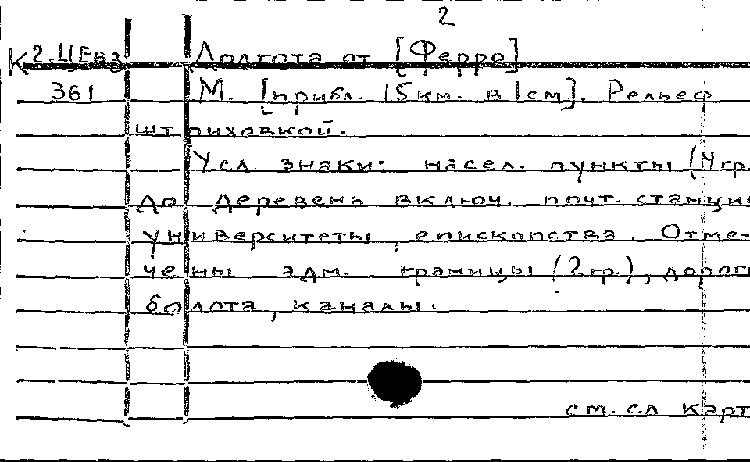 2
К2.ЦЕвз Долгота от [Ферро]
361 М. [прибл. 15км. в 1см]. Рельеф
штриховкой.
Усл. знаки: насел. пункты (4 гр.
до деревень включ. почт. станции
университеты, епископства. Отме-
чены адм. границы (2 гр.), дорог
болота, каналы.
см. сл. карт